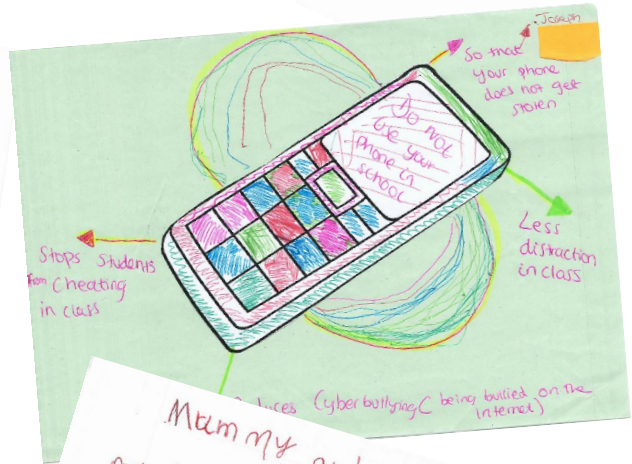 Joseph
So that
your phone
does not get
stolen
Do not
use your
phone in
school
Less
distraction
in class
Stops Students
from Cheating
in class
Cyberbullying ( being bullied on the
internet)
Mammy